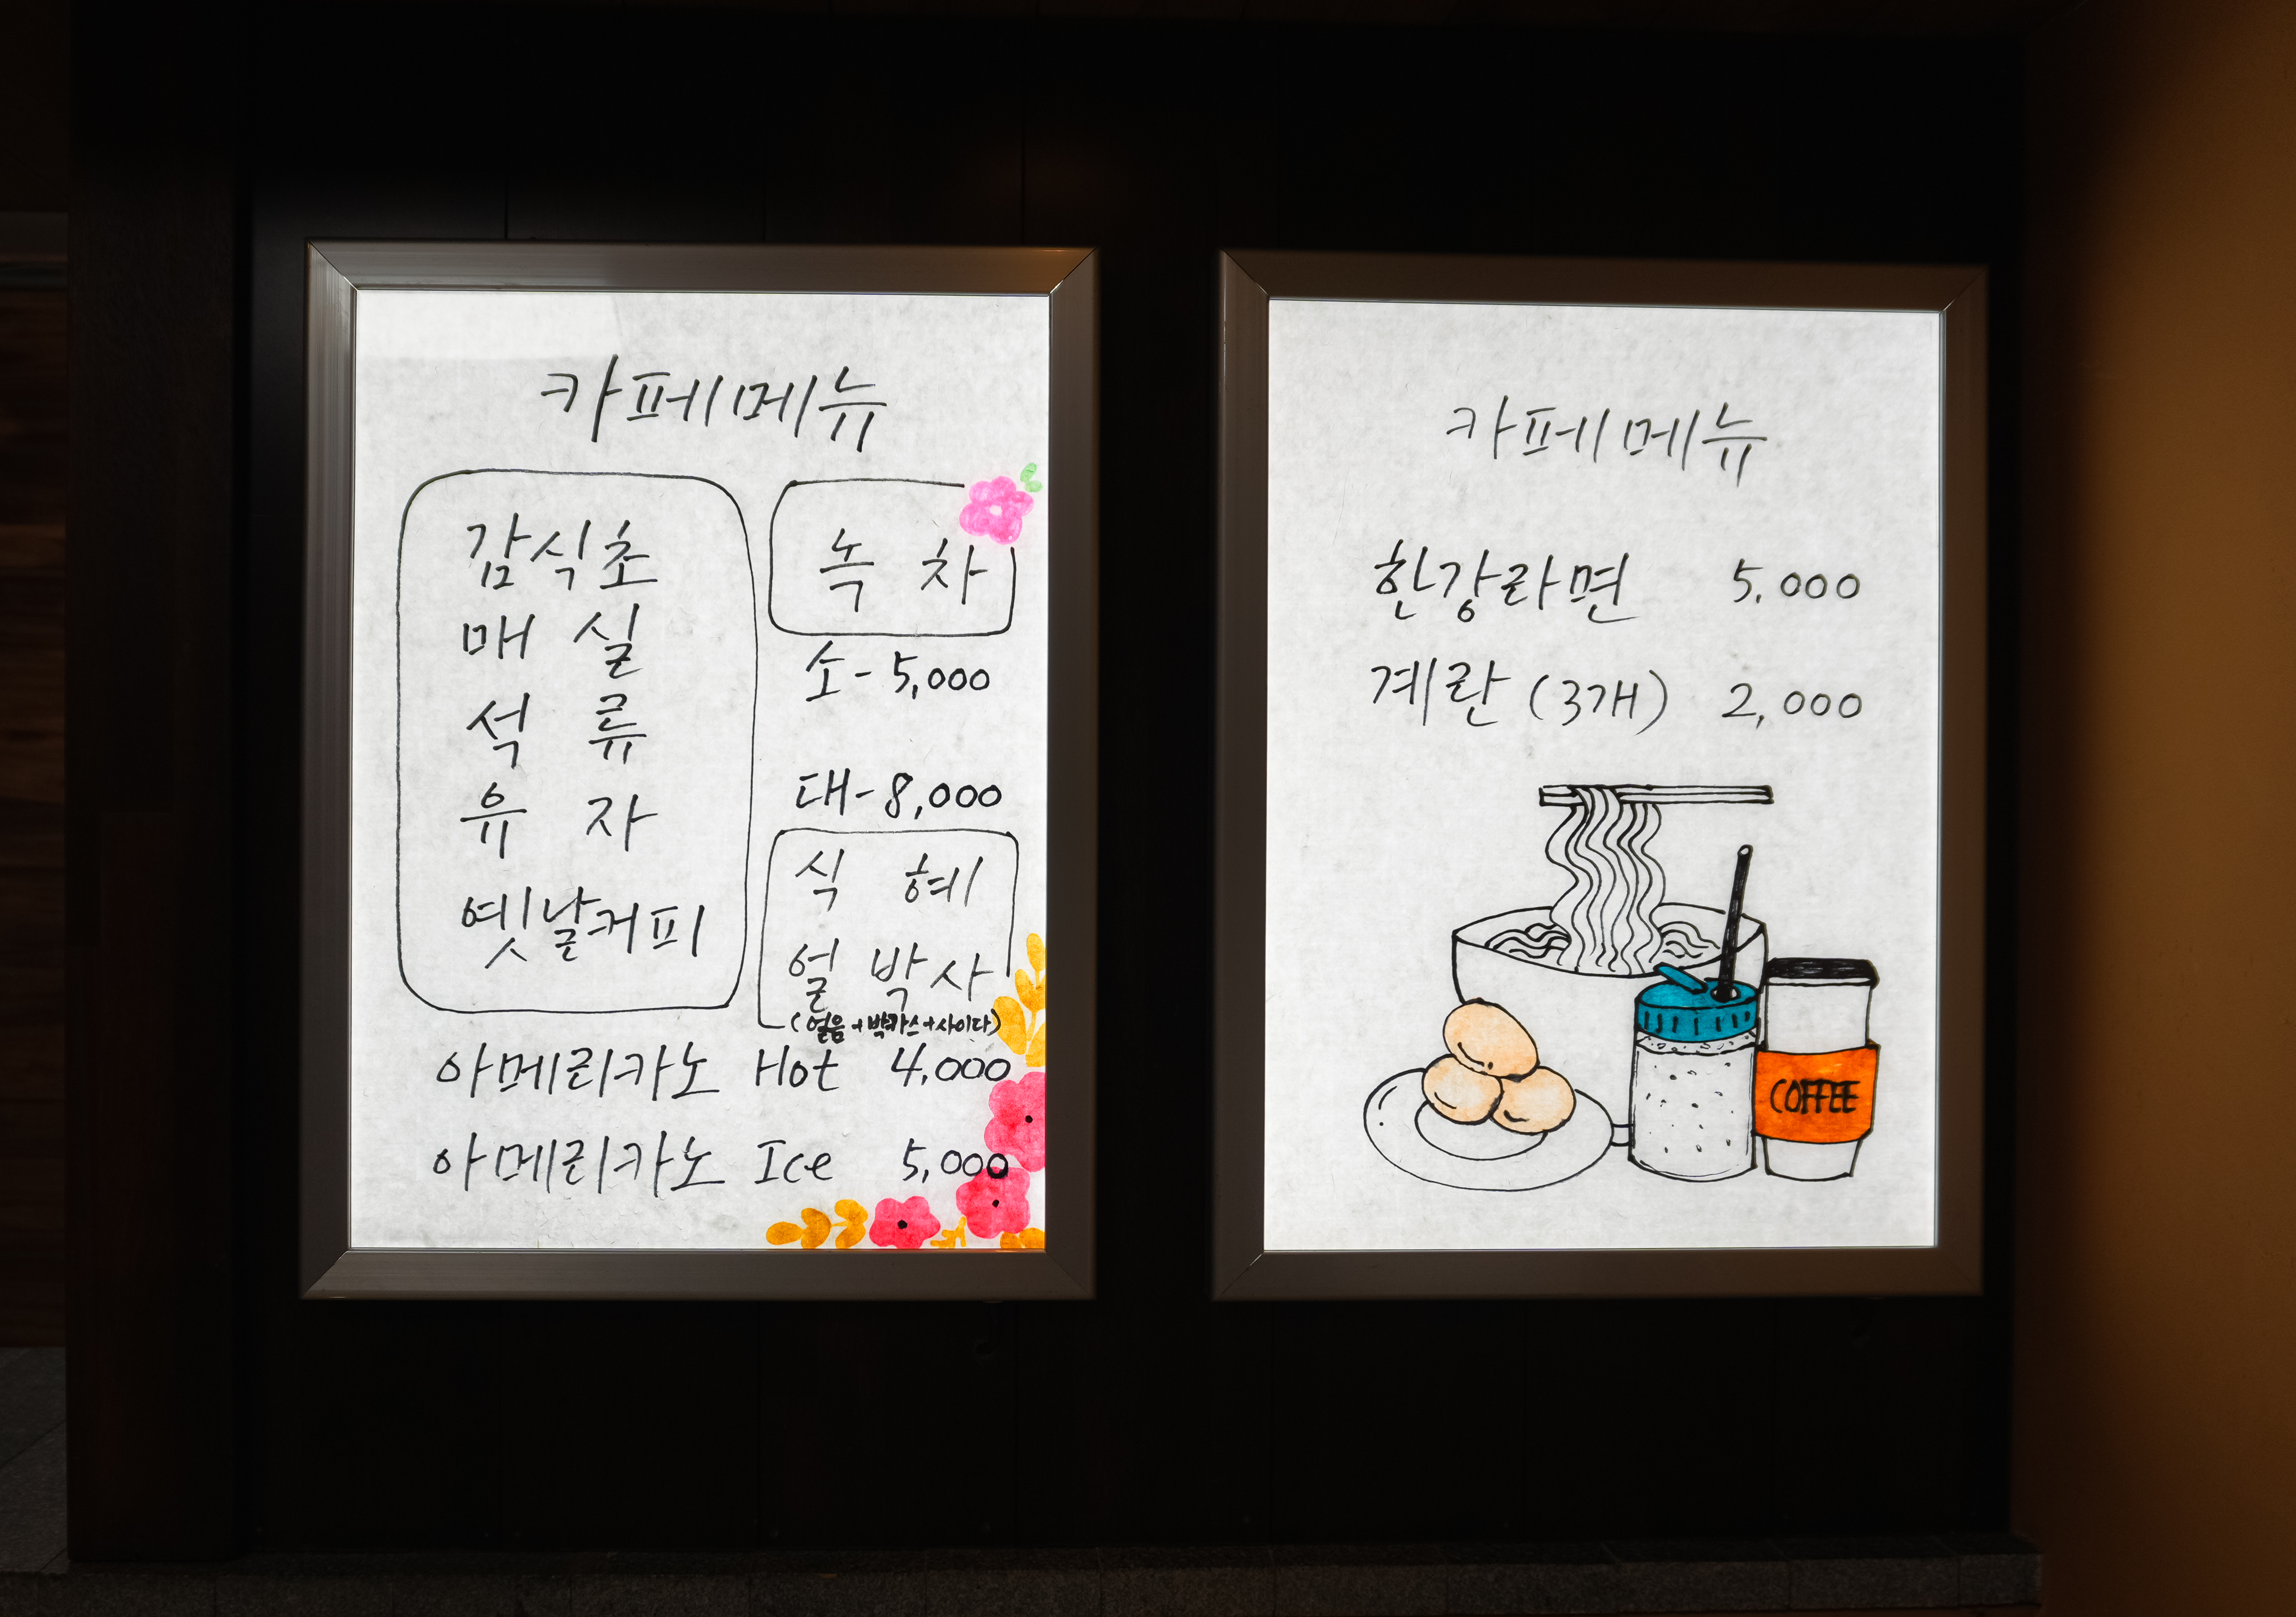 카페메뉴
감식초
매 실
석 류
유 자
옛날커피
녹 차
소 - 5,000
대 - 8,000
식 혜
얼 박사
(얼음+박카스+사이다)
아메리카노 Hot 4,000
아메리카노 Ice 5,000
카페메뉴
한강라면 5,000
계란 (3개) 2,000
COFFEE